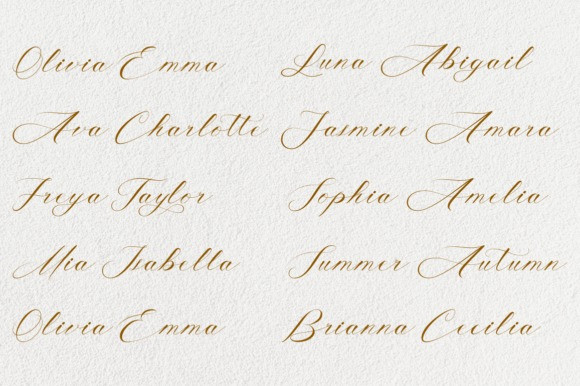 Olivia Emma
Ava Charlotte
Freya Taylor
Mia Isabella
Olivia Emma
Luna Abigail
Jasmine Amara
Sophia Amelia
Summer Autumn
Brianna Cecilia